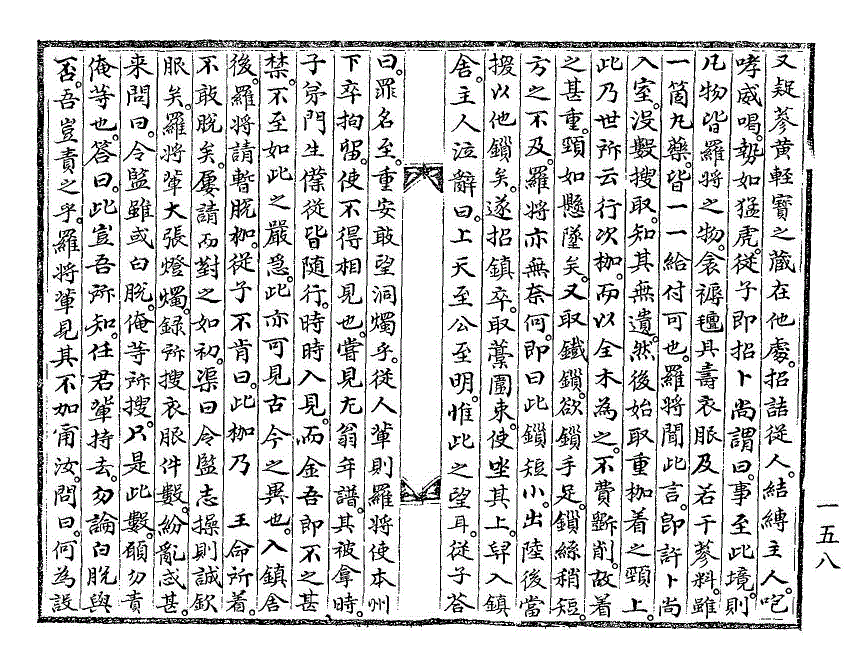 又疑蔘黄輕寶之蔵在他處。招詰從人。結縛主人。咆
哮威喝。勢如猛虎。從子即招卜尚謂曰。事至此境。則
凡物皆羅將之物。衾褥氊具壽衣服及若干蔘料。雖
一箇丸藥。皆一一給付可也。羅將聞此言。即許卜尚
入室。沒數搜取。知其無遺。然後始取重枷着之頸上。
此乃世所云行次枷。而以全木為之。不費斲削。故着
之甚重。頸如懸墜矣。又取鐵鎖。欲鎖手足。鎖絲稍短。
方之不及。羅將亦無奈何。即曰此鎖短小。出陸後當
援以他鎖矣。遂招鎮卒。取藁圍束。使坐其上。舁入鎮
舍。主人泣辭曰。上天至公至明。惟此之望耳。從子答
曰。罪名至重。安敢望洞燭乎。從人輩則羅將使本州
下卒拘留。使不得相見也。嘗見尤翁年譜。其被拿時。
子弟門生傔從皆随行。時時入見。而金吾郎不之甚
禁。不至如此之嚴急。此亦可見古今之異也。入鎮舍
後。羅將請暫脫枷。從子不肯曰。此枷乃 王命所着。
不敢脫矣。屢請而對之如初。渠曰令監志操則誠欽
服矣。羅將輩大張燈燭。録所搜衣服件數。紛亂忒甚。
来問曰。令監雖或白脫。俺等所搜。只是此數。願勿責
俺等也。答曰。此豈吾所知。任君輩持去。勿論白脫與
否。吾豈責之乎。羅將輩見其不加甭汝。問曰。何為設
一五八